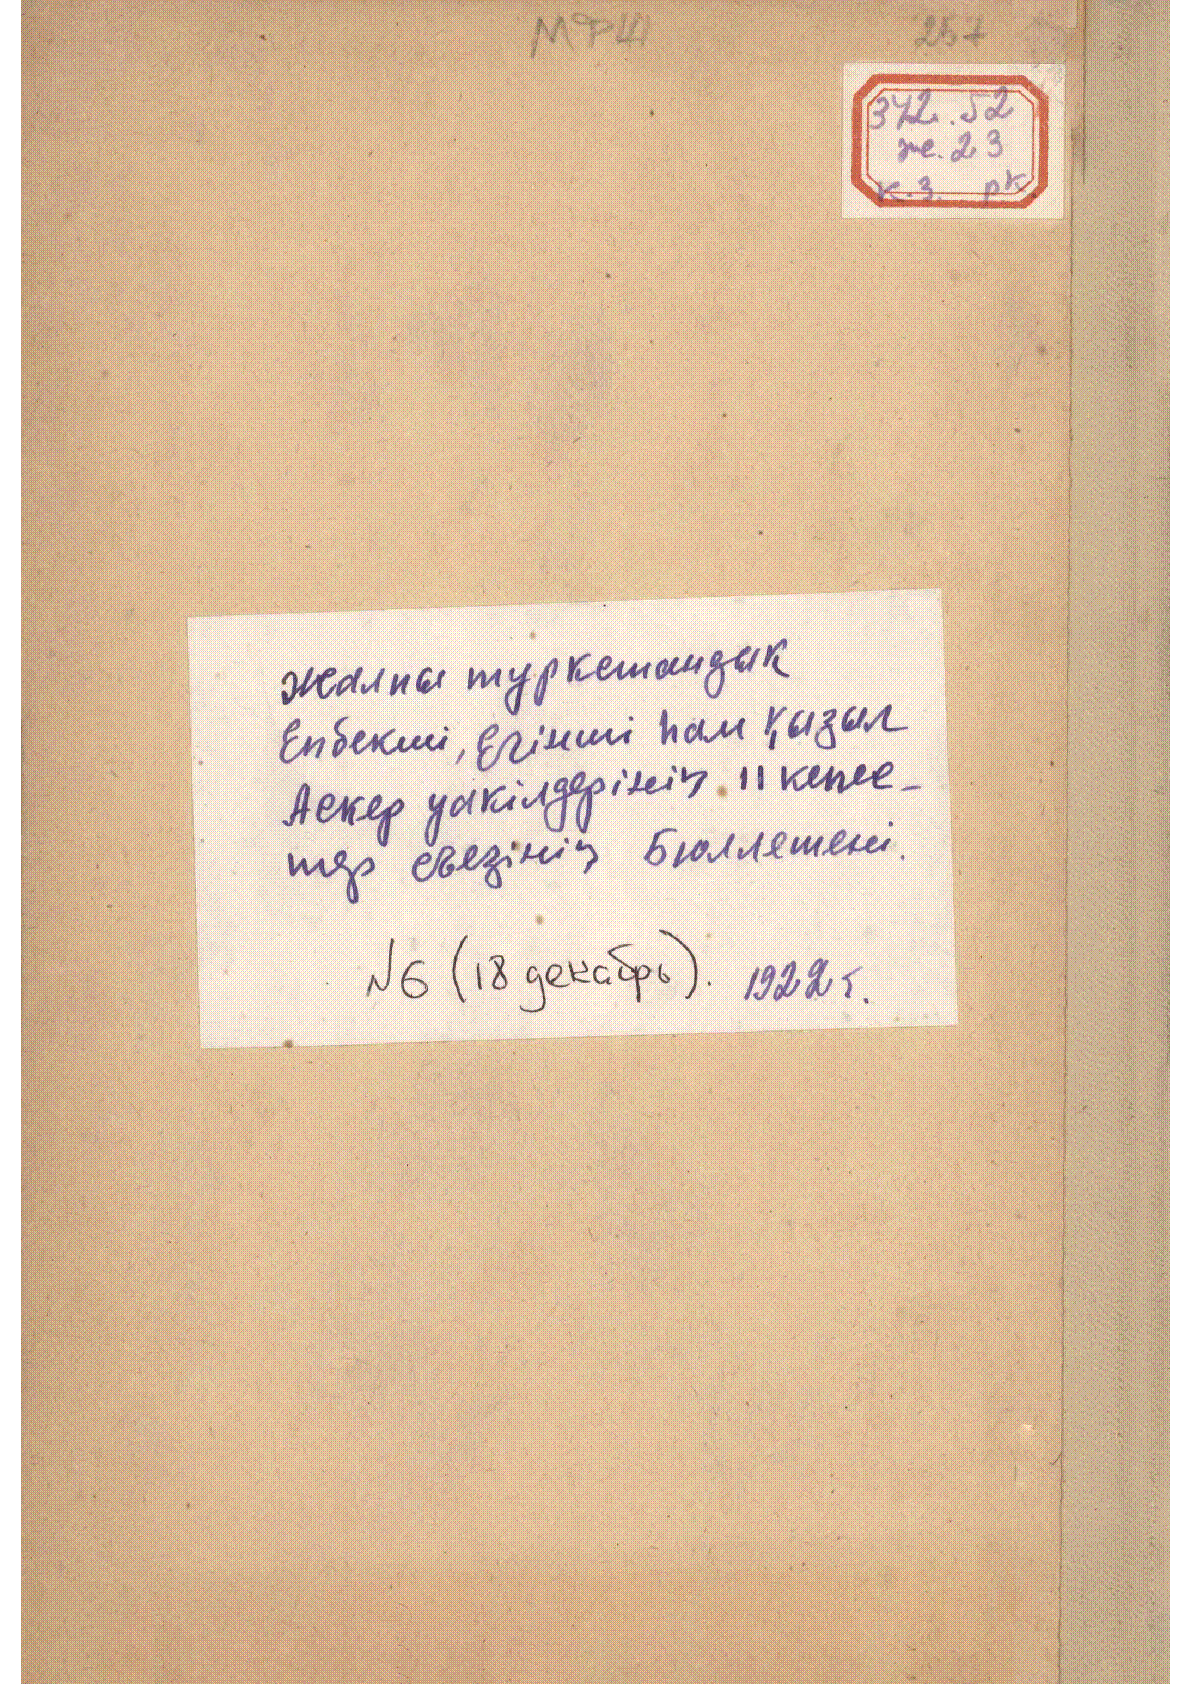 МФШ 257
342.52
же.23
к.з. рк
Жалпы түркестандық
Еңбекші, Егінші һәм қызыл
Аскер уәкілдерінің 11 кеңес-
тер сьезінің Бюллетені.
№6 (18 декабрь). 1922 г.